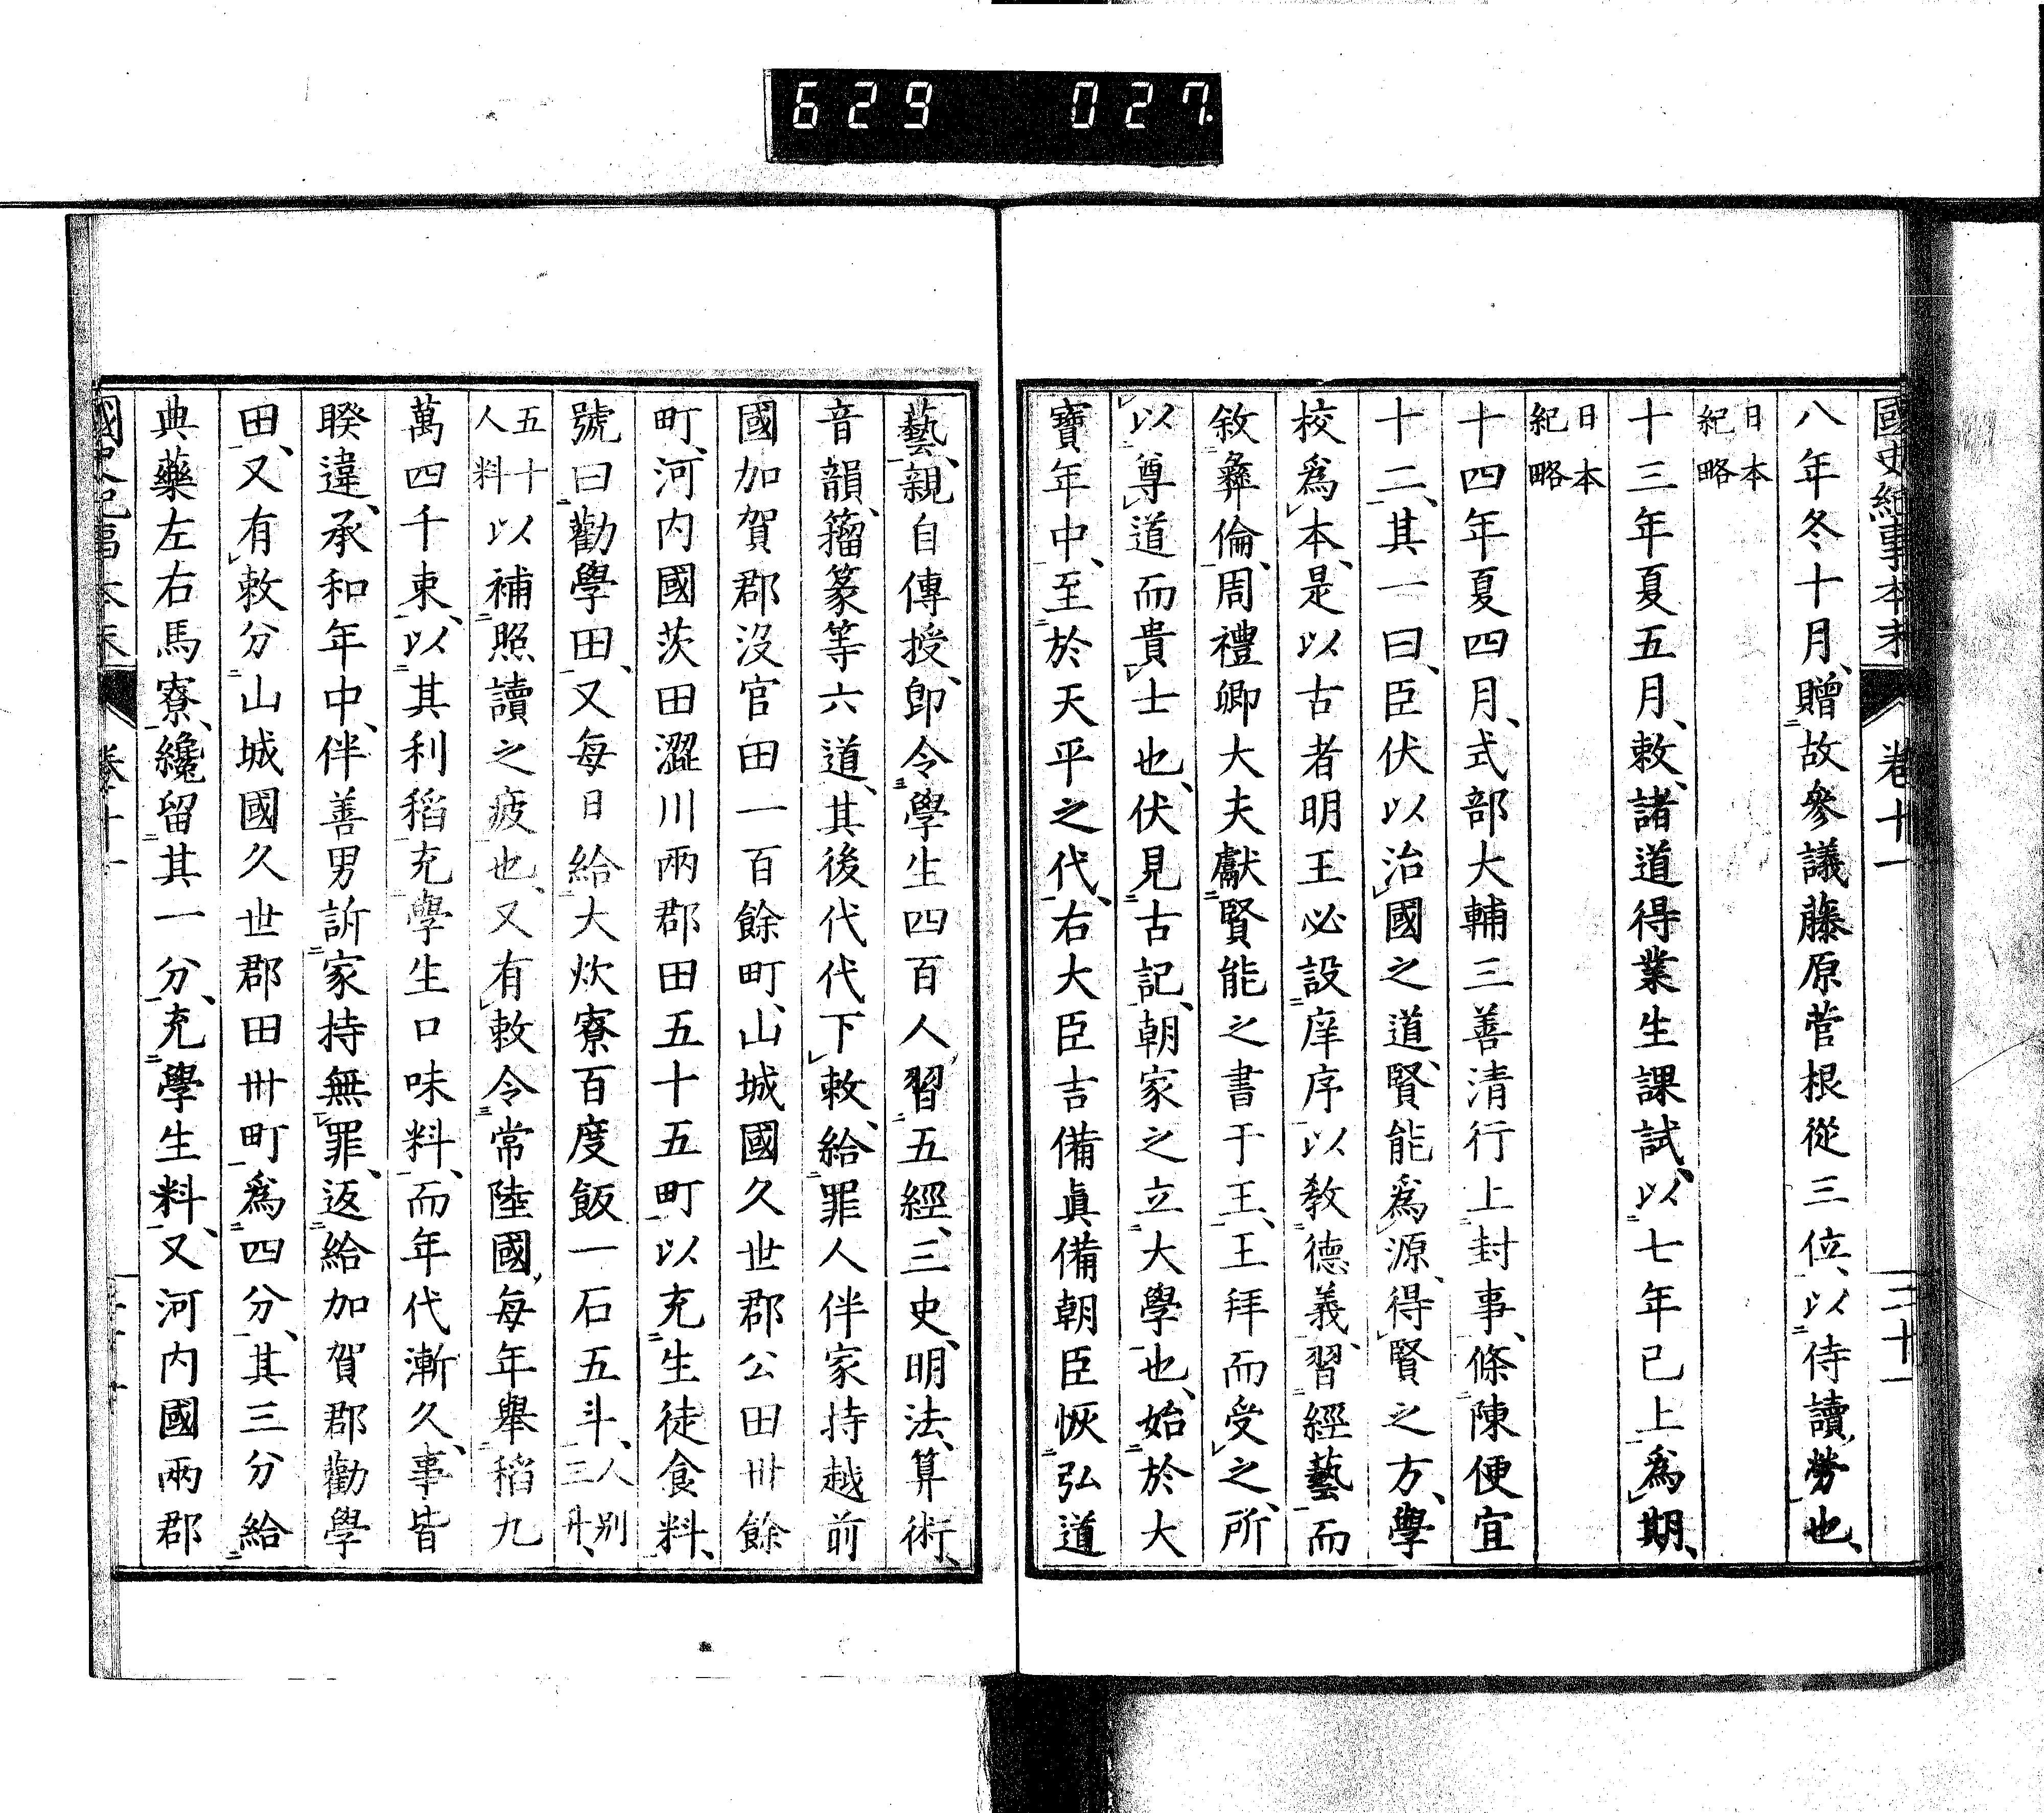 629 027.
國史紀事本末 卷十一 二十一
八年冬十月、贈故參議藤原菅根從三位、以侍讀勞也、
日本紀略
十三年夏五月、敕、諸道得業生課試、以七年已上爲期、
日本紀略
十四年夏四月、式部大輔三善清行上封事、條陳便宜
十二、其一曰、臣伏以治國之道、賢能爲源、得賢之方、學
校爲本、是以古者明王必設庠序以教德義、習經藝而
敘彝倫、周禮卿大夫獻賢能之書于王、王拜而受之、所
以尊道而貴士也、伏見古記、朝家之立大學也、始於大
寶年中、至於天平之代、右大臣吉備眞備朝臣恢弘道
藝、親自傳授、卽令學生四百人、習五經、三史、明法、算術、
音韻、籀篆等六道、其後代代下敕、給罪人伴家持越前
國加賀郡沒官田一百餘町、山城國久世郡公田卅餘
町、河内國茨田澀川兩郡田五十五町以充生徒食料、
號曰勸學田、又每日給大炊寮百度飯一石五斗、人別三升、
五十人料以補照讀之疲也、又有敕令常陸國、每年舉稻九
萬四千束、以其利稻充學生口味料、而年代漸久、事皆
睽違、承和年中、伴善男訴家持無罪、返給加賀郡勸學
田、又有敕分山城國久世郡田卅町爲四分、其三分給
典藥左右馬寮、纔留其一分、充學生料、又河内國兩郡